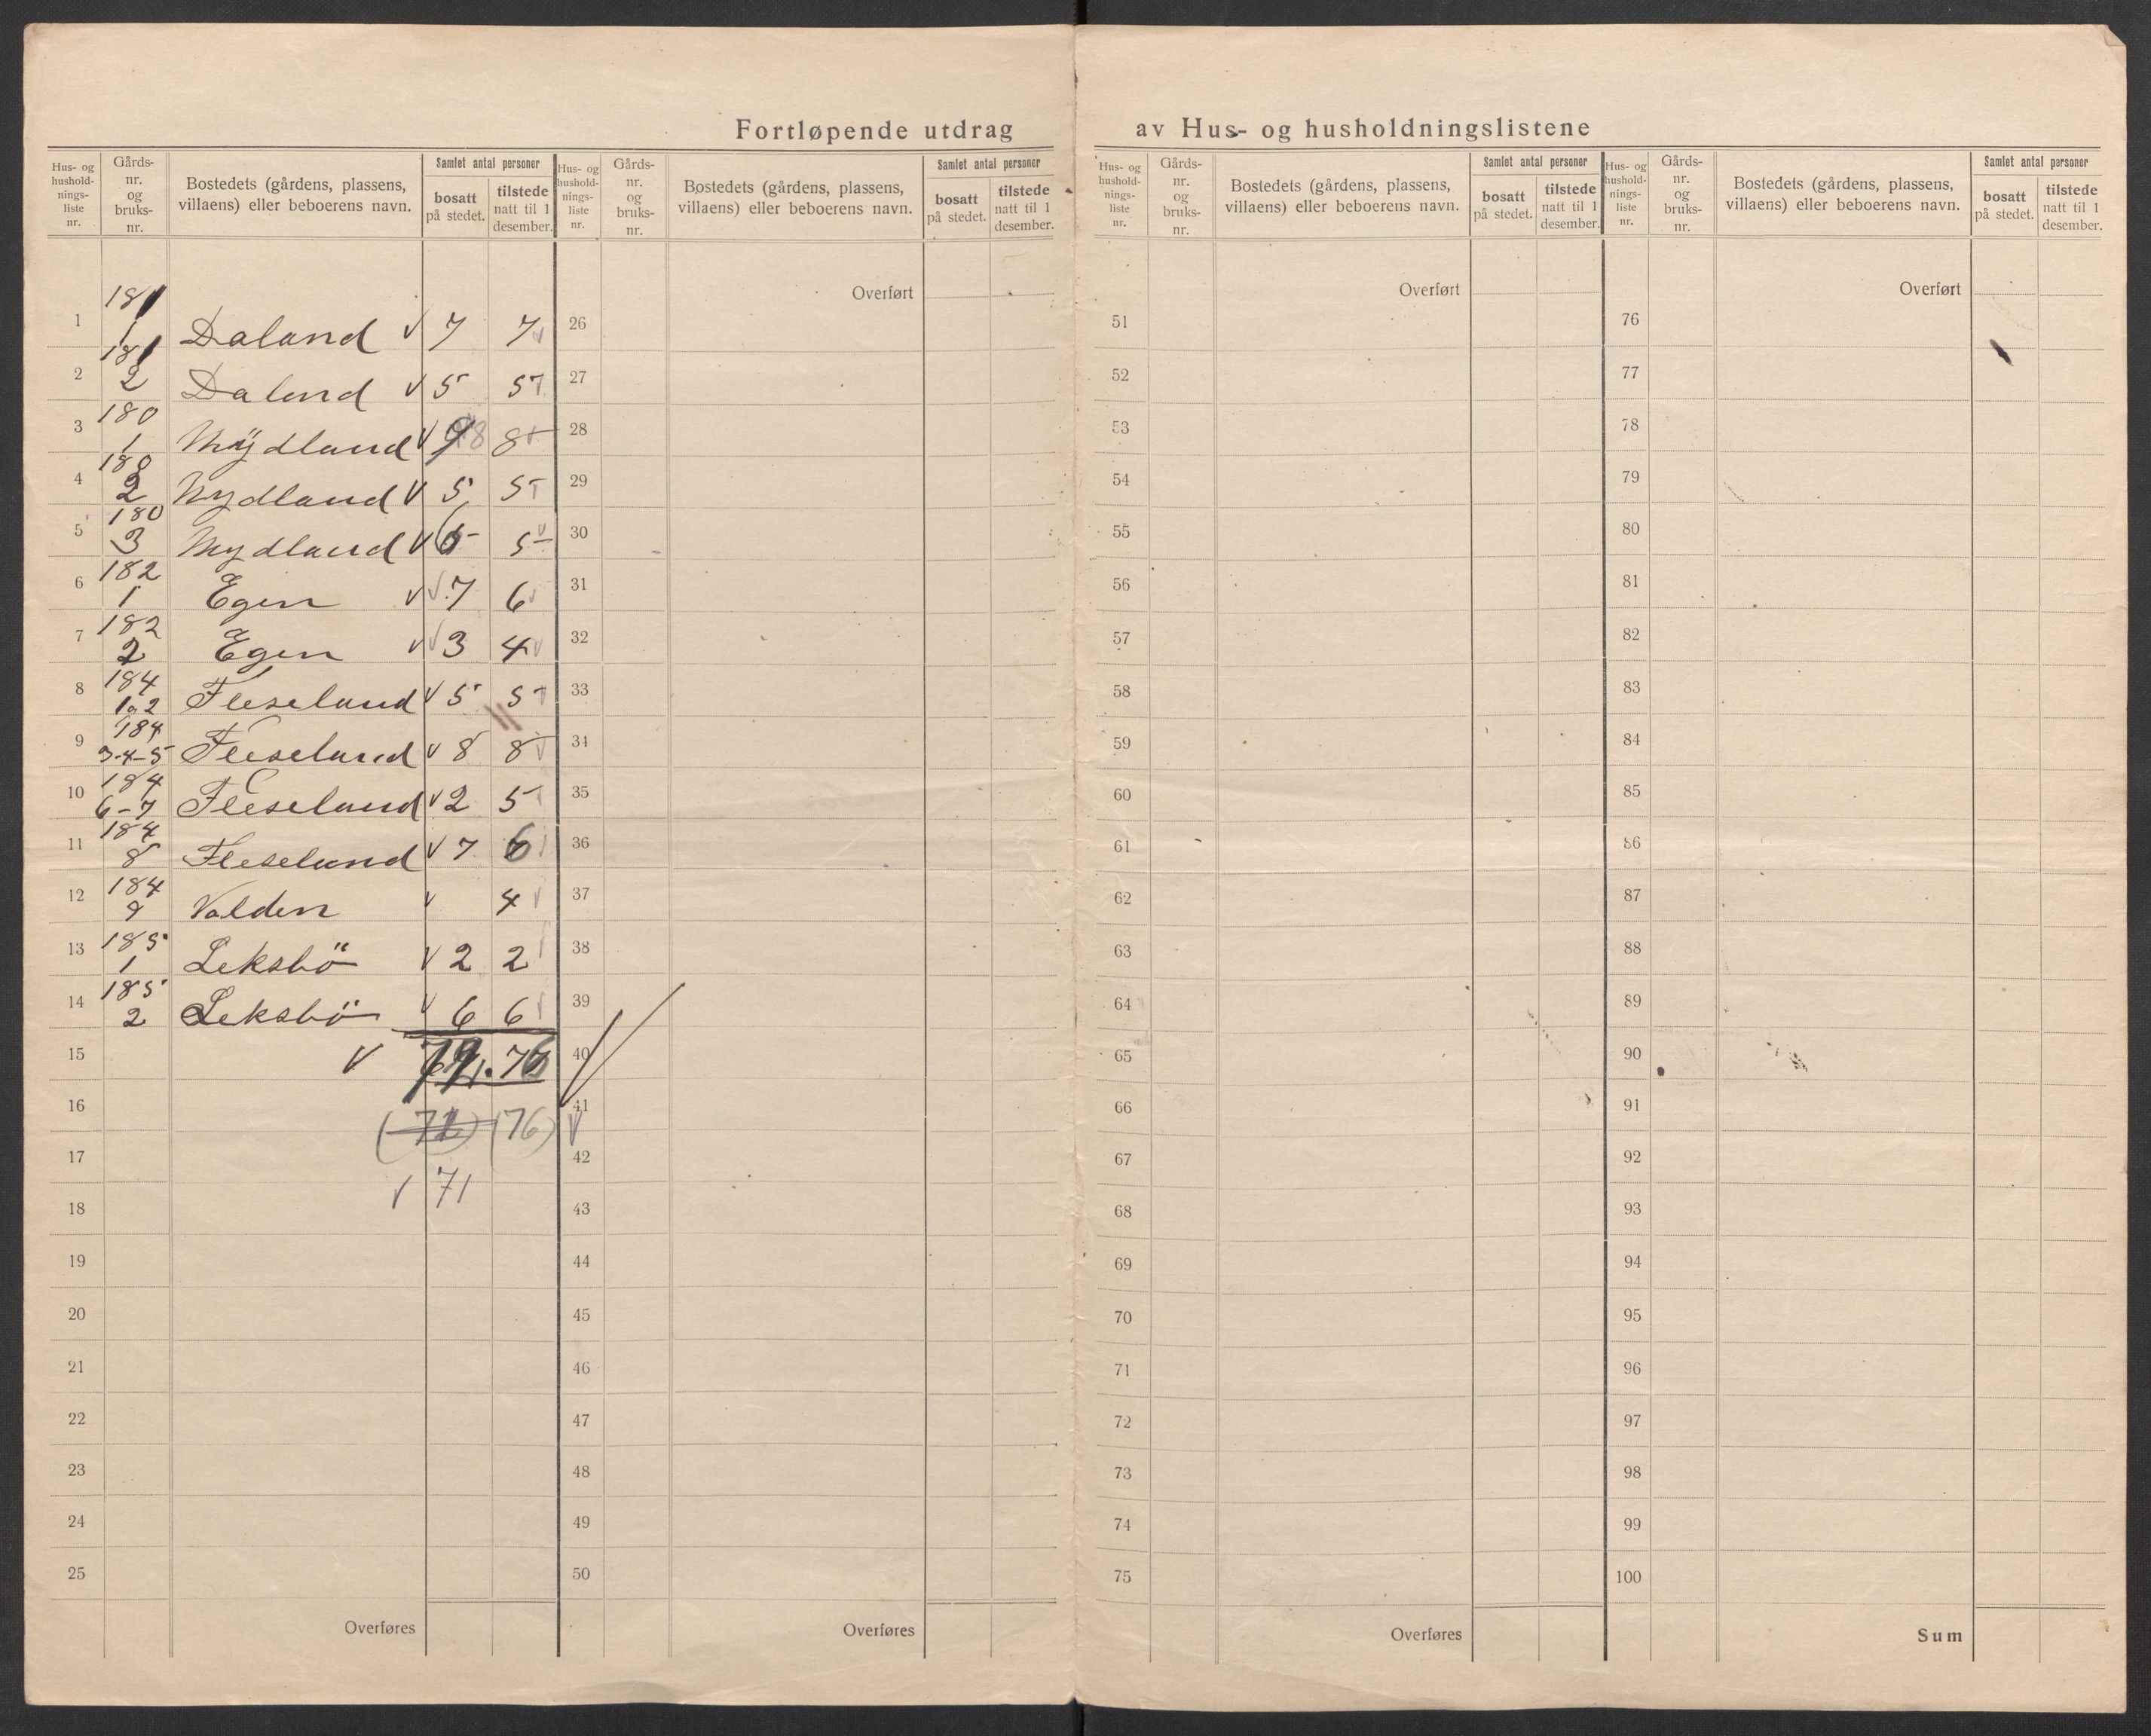 Fortløpende utdrag av Hus- og husholdningslistene
Hus- og hushold-nings-liste nr. Gårds-nr. og bruks-nr. Bostedets (gårdens, plassens, villaens) eller beboerens navn. Samlet antal personer bosatt på stedet. tilstede natt til 1 desember.
Hus- og hushold-nings-liste nr. Gårds-nr. og bruks-nr. Bostedets (gårdens, plassens, villaens) eller beboerens navn. Samlet antal personer bosatt på stedet. tilstede natt til 1 desember.
Hus- og hushold-nings-liste nr. Gårds-nr. og bruks-nr. Bostedets (gårdens, plassens, villaens) eller beboerens navn. Samlet antal personer bosatt på stedet. tilstede natt til 1 desember.
Hus- og hushold-nings-liste nr. Gårds-nr. og bruks-nr. Bostedets (gårdens, plassens, villaens) eller beboerens navn. Samlet antal personer bosatt på stedet. tilstede natt til 1 desember.
1 181 1 Daland 7 7
2 181 2 Daland 5 5
3 180 1 Mydland 8 8
4 180 2 Mydland 5 5
5 180 3 Mydland 6 5
6 182 1 Egen 7 6
7 182 2 Egen 3 4
8 184 1 2 Fleseland 5 5
9 184 3-4-5 Fleseland 8 8
10 184 6-7 Fleseland 2 5
11 184 8 Fleseland 7 6
12 184 9 Valden 4
13 185 1 Leksbö 2 2
14 185 2 Leksbö 6 6
15 71. 76
16 (72) (76)
17 71
18
19
20
21
22
23
24
25
Overføres
Overført
26
27
28
29
30
31
32
33
34
35
36
37
38
39
40
41
42
43
44
45
46
47
48
49
50
Overføres
Overført
51
52
53
54
55
56
57
58
59
60
61
62
63
64
65
66
67
68
69
70
71
72
73
74
75
Overføres
Overført
76
77
78
79
80
81
82
83
84
85
86
87
88
89
90
91
92
93
94
95
96
97
98
99
100
Sum